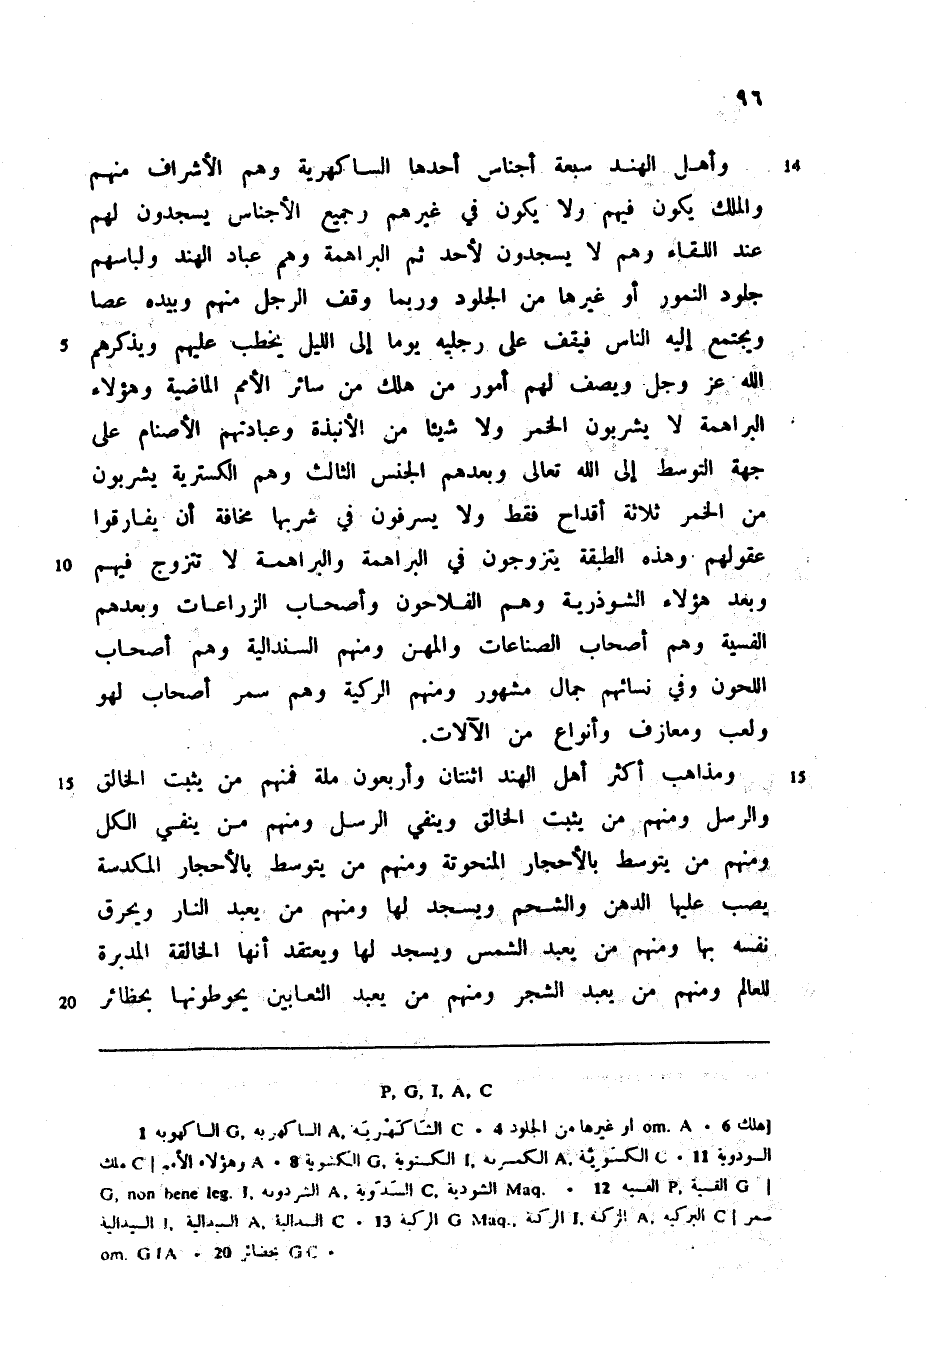 ٩٦
14 وأهل الهند سبعة أجناس أحدها الساكهرية وهم الأشراف منهم
والملك يكون فيهم ولا يكون في غيرهم وجميع الأجناس يسجدون لهم
عند اللقاء وهم لا يسجدون لأحد ثم البراهمة وهم عباد الهند ولباسهم
جلود النمور أو غيرها من الجلود وربما وقف الرجل منهم وبيده عصا
ويجتمع إليه الناس فيقف على رجليه يوما إلى الليل يخطب عليهم ويذكرهم 5
الله عز وجل ويصف لهم أمور من هلك من سائر الأمم الماضية وهؤلاء
البراهمة لا يشربون الخمر ولا شيئا من الأنبذة وعبادتهم الأصنام على
جهة التوسط إلى الله تعالى وبعدهم الجنس الثالث وهم الكسترية يشربون
من الخمر ثلاثة أقداح فقط ولا يسرفون في شربها مخافة أن يفارقوا
عقولهم وهذه الطبقة يتزوجون في البراهمة والبراهمة لا تتزوج فيهم 10
وبعد هؤلاء الشوذرية وهم الفلاحون وأصحاب الزراعات وبعدهم
الفسية وهم أصحاب الصناعات والمهن ومنهم السندالية وهم أصحاب
اللحون وفي نسائهم جمال مشهور ومنهم الركية وهم سمر أصحاب لهو
ولعب ومعازف وأنواع من الآلات.
15 ومذاهب أكثر أهل الهند اثنتان وأربعون ملة فمنهم من يثبت الخالق 15
والرسل ومنهم من يثبت الخالق وينفي الرسل ومنهم من ينفي الكل
ومنهم من يتوسط بالأحجار المنحوتة ومنهم من يتوسط بالأحجار المكدسة
يصب عليها الدهن والشحم ويسجد لها ومنهم من يعبد النار ويحرق
نفسه بها ومنهم من يعبد الشمس ويسجد لها ويعتقد أنها الخالقة المدبرة
للعالم ومنهم من يعبد الشجر ومنهم من يعبد الثعابين يحوطونها بحظائر 20
P, G, I, A, C
1 G, A, C • 4 او غيرها من الجلود om. A • 6 هلك]
ملك C | وهؤلاء الأمم A • 8 G, I, A, C • 11
G, non bene leg. I, A, C, الشودية Maq. • 12 P, G |
I, A, C • 13 الركية G Maq., I, A, C | سمر
om. G I A • 20 G C •